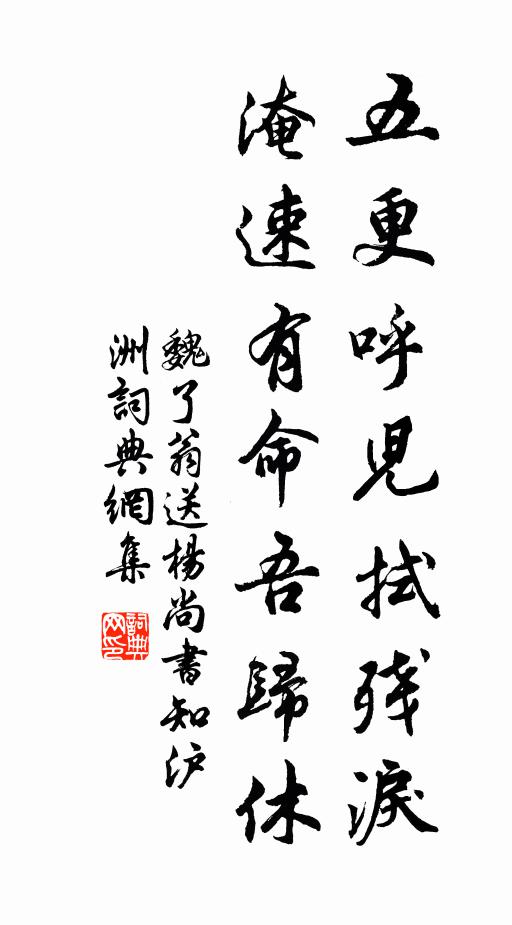 五更呼児拭残淚
淹速有命吾歸休
魏了翁送楊尚書知沪
洲詞典網集
詞典网印